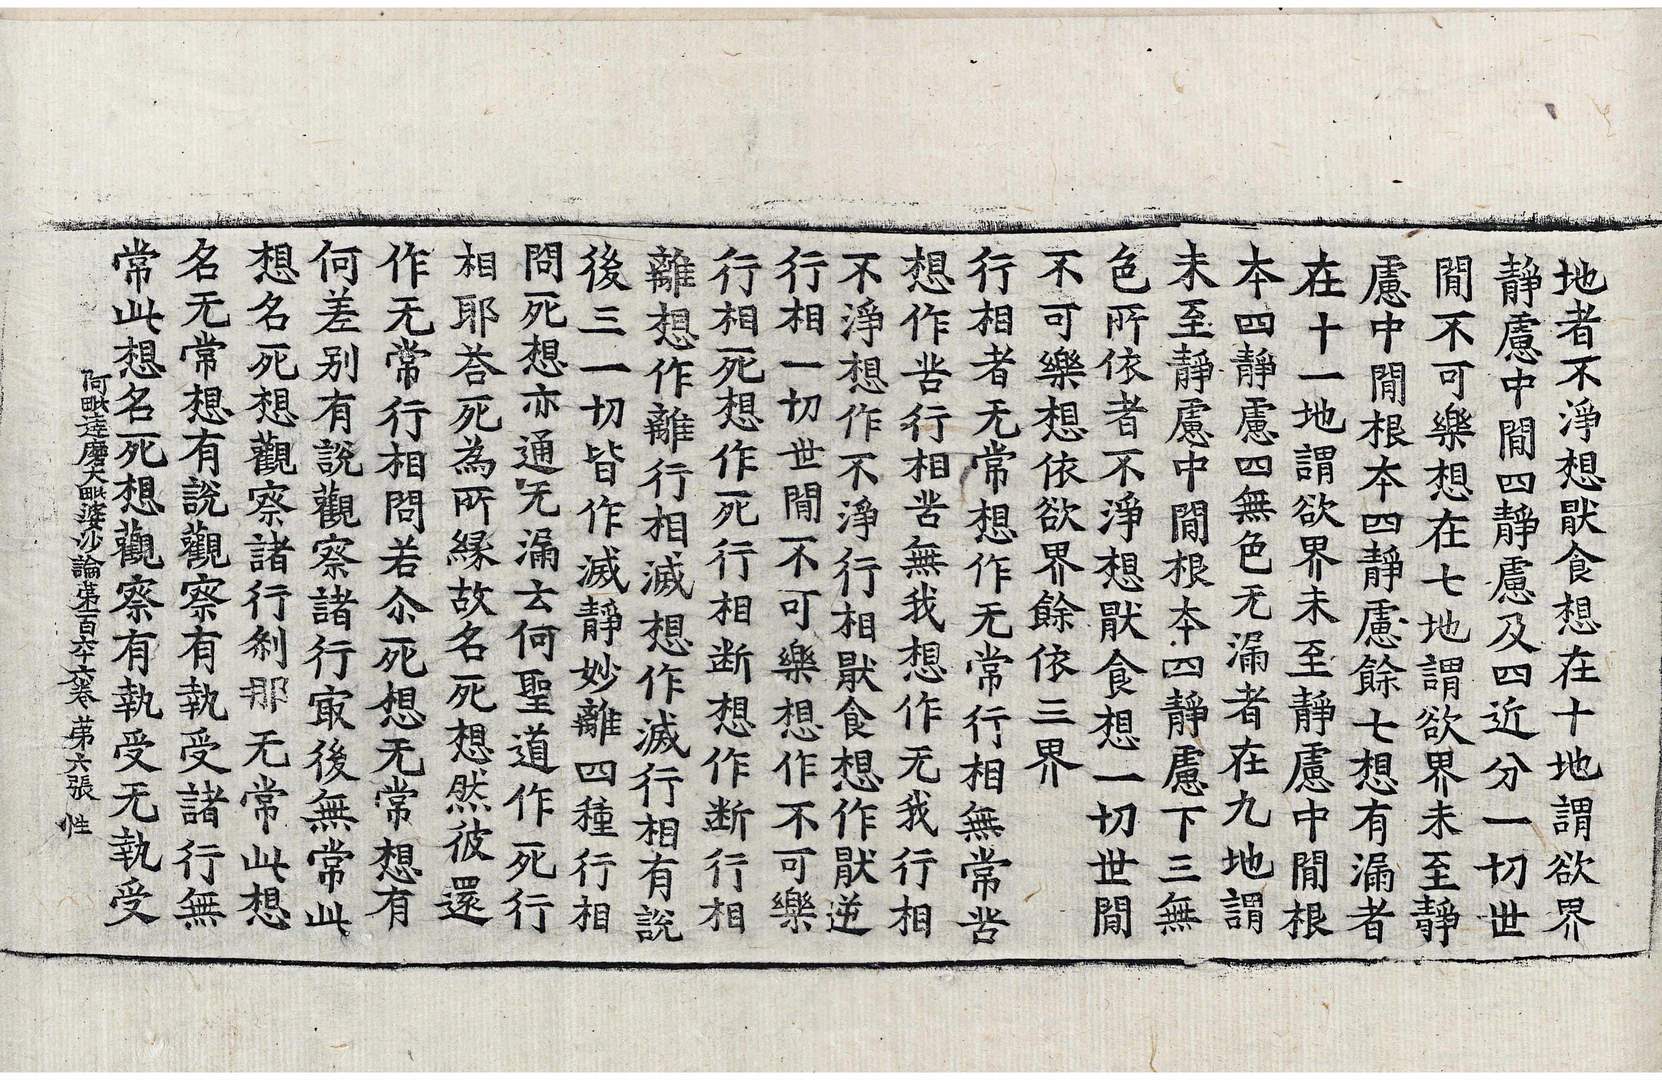 地者不淨想猒食想在十地謂欲界
靜慮中閒四靜慮及四近分一切世
閒不可樂想在七地謂欲界未至靜
慮中閒根夲四靜慮餘七想有漏者
在十一地謂欲界未至靜慮中閒根
夲四靜慮四無色无漏者在九地謂
未至靜慮中閒根夲四靜慮下三無
色所依者不淨想猒食想一切世閒
不可樂想依欲界餘依三界
行相者无常想作无常行相無常苦
想作苦行相苦無我想作无我行相
不淨想作不淨行相猒食想作猒逆
行相一切世閒不可樂想作不可樂
行相死想作死行相断想作断行相
離想作離行相滅想作滅行相有說
後三一切皆作滅靜妙離四種行相
問死想亦通无漏云何聖道作死行
相耶荅死為所縁故名死想然彼還
作无常行相問若尒死想无常想有
何差别有說觀察諸行㝡後無常此
想名死想觀察諸行刹那无常此想
名无常想有說觀察有執受諸行無
常此想名死想觀察有執受无執受
阿毗達磨大毗婆沙論第一百六十六卷 第六張 性